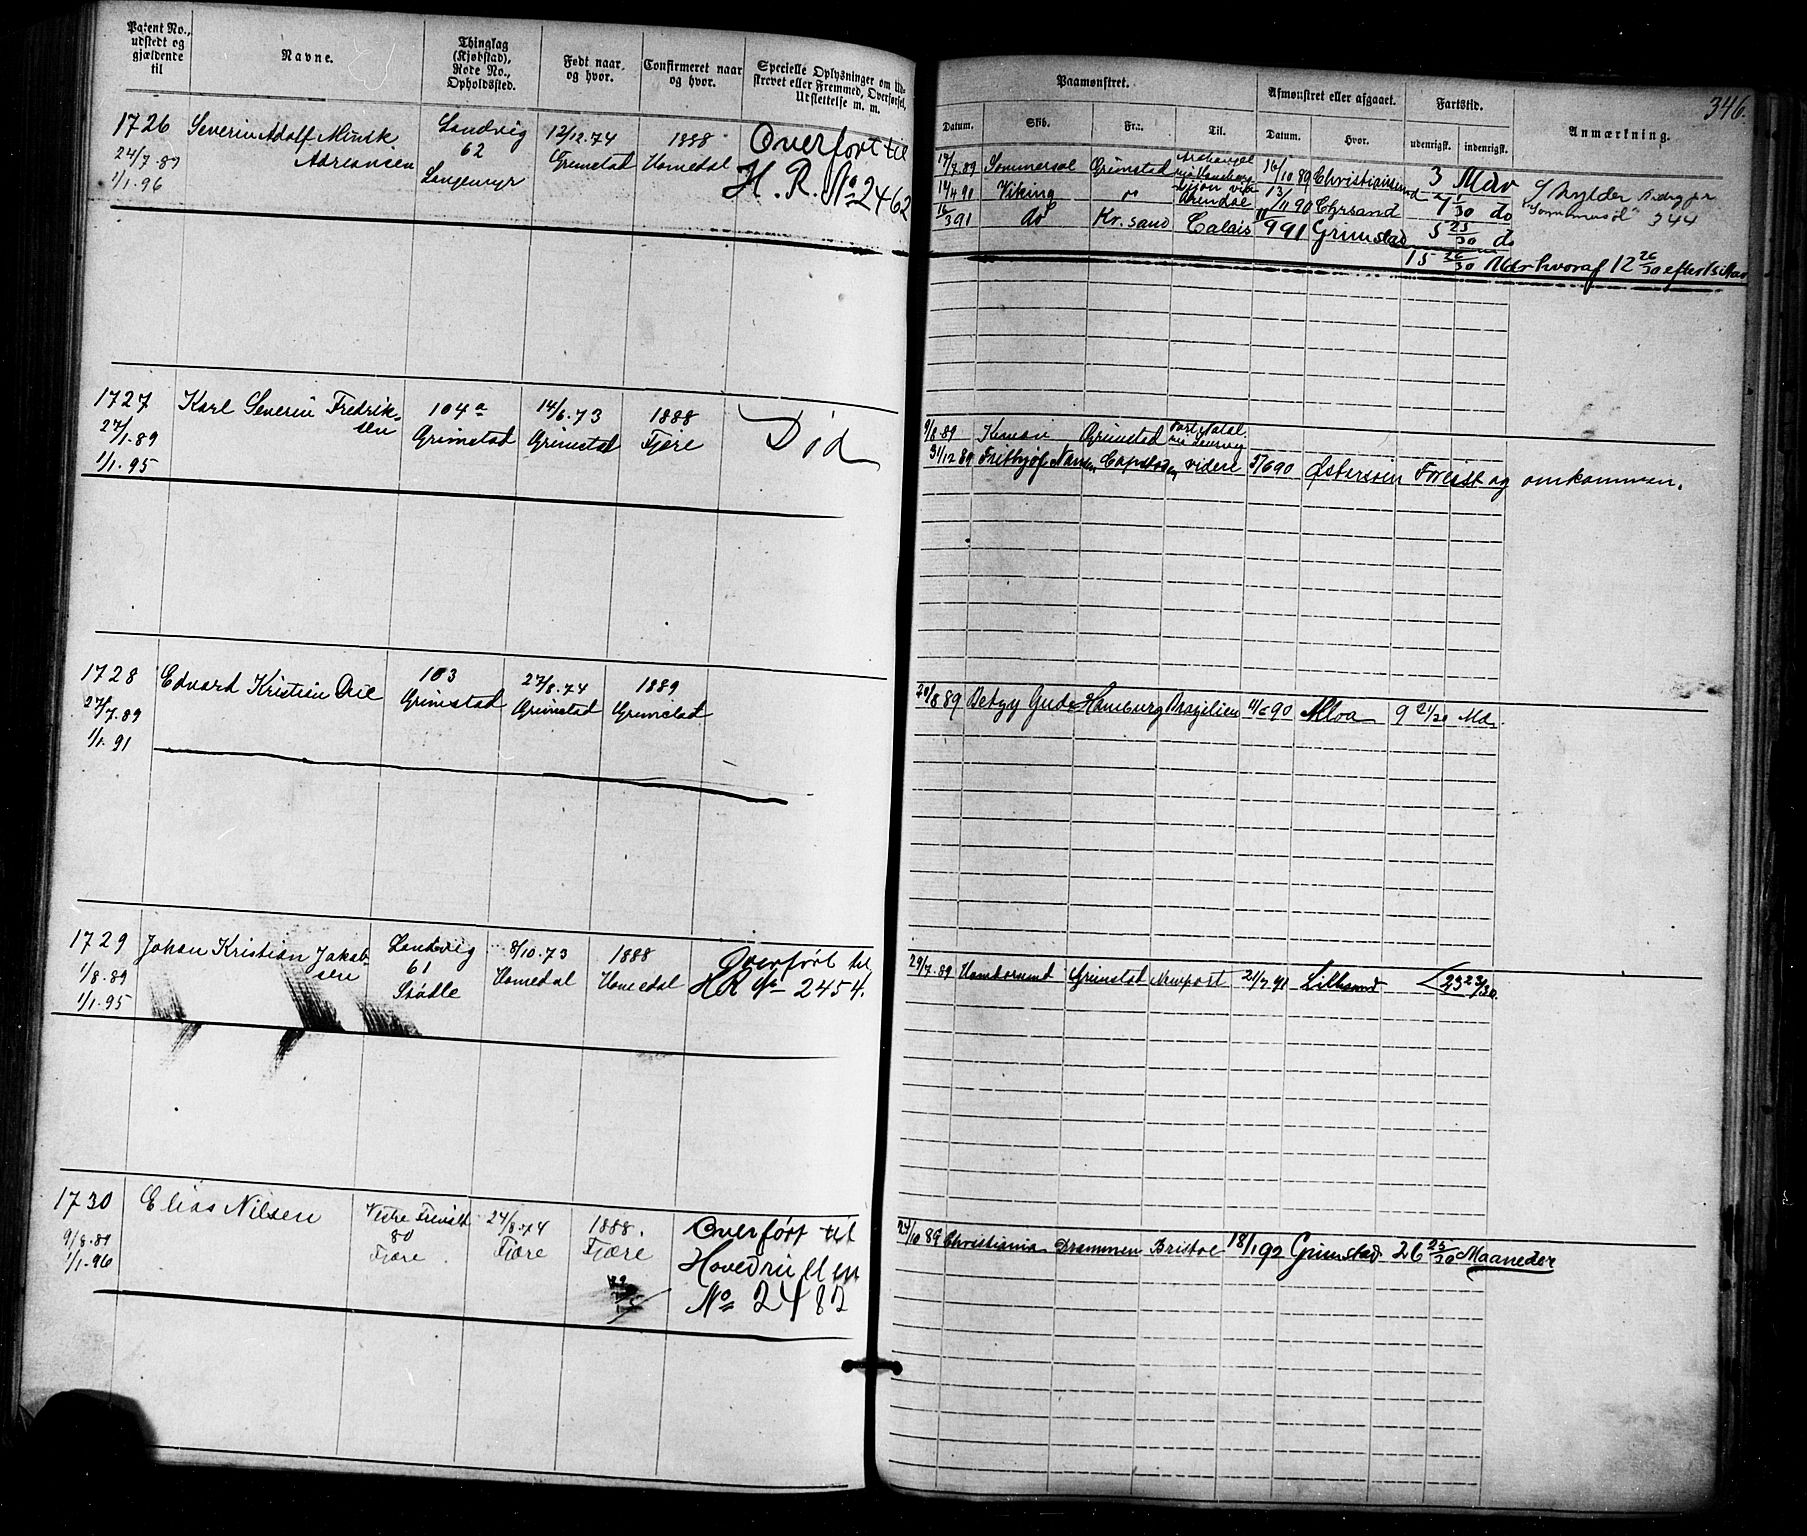 Patent No., udstedt og gjældende til
Navne.
Thinglag (Kjøbstad), Rode No., Opholdssted.
Født naar og hvor.
Confirmeret naar og hvor.
Specielle Oplysninger om Udskrevet eller Fremmed, Overførsel, Udslettelse m. m.
1726
24/7.89
1/1.96
Severin Adolf Munk
Adriansen
Landvig
62
Langemyr
12/12.74
Grimstad
1888
Homedal
Overført til
H. R. No 2462
1727
27/1.89
1/1.95
Karl Severin Fredrik-
sen
104a
Grimstad
14/6.73
Grimstad
1888
Fjære
Død
1728
27/7.89
1/1.91
Edvard Kristian
103
Grimstad
27/8.74
Grimstad
1889
Grimstad
1729
1/8.89
1/1.95
Johan Kristian Jakob-
sen
Landvig
61
Stødle
8/10.73
Homedal
1888
Homedal
Overført til
HR No 2454.
1730
9/8.89
1/1.96
Elias Nilsen
Vestre
80
Fjære
24/8.74
Fjære
1888.
Fjære
Overført til
Hovedrullen
No 2482
346.
Paamønstret.
Afmønstret eller afgaaet.
Fartstid.
Anmærkning.
Datum.
Skib.
Fra.
Til.
Datum.
Hvor.
udenrigsk.
indenrigsk.
17/7.89 Sommersol Grimstad 16/10 89 Christianssand 3 Mdr
14/4 90 Viking " 13/11 90 Chrsand 7 1/30 do
16/3 91 do Kr.sand Calais 11/9 91 Grimstad 5 25/30 do
15 26/30 Mdr hvoraf 12 26/30 efter
Skylder
"Sommersol" 344
9/8 89 Grimstad Port Natal
31/12 89 Fridthjof Nansen Capstaden videre 90 Østersøen Forlist og omkommen.
20/8 89 Betzy Gude Hamburg Brazilien 11/6 90 Alloa 9 21/30 Md.
29/7.89 Homborsund Grimstad Newport 21/7 91 Lillesand 23 23/30
24/10 89 Christiania Drammen Bristol 18/1 92 Grimstad 26 25/30 Maaneder